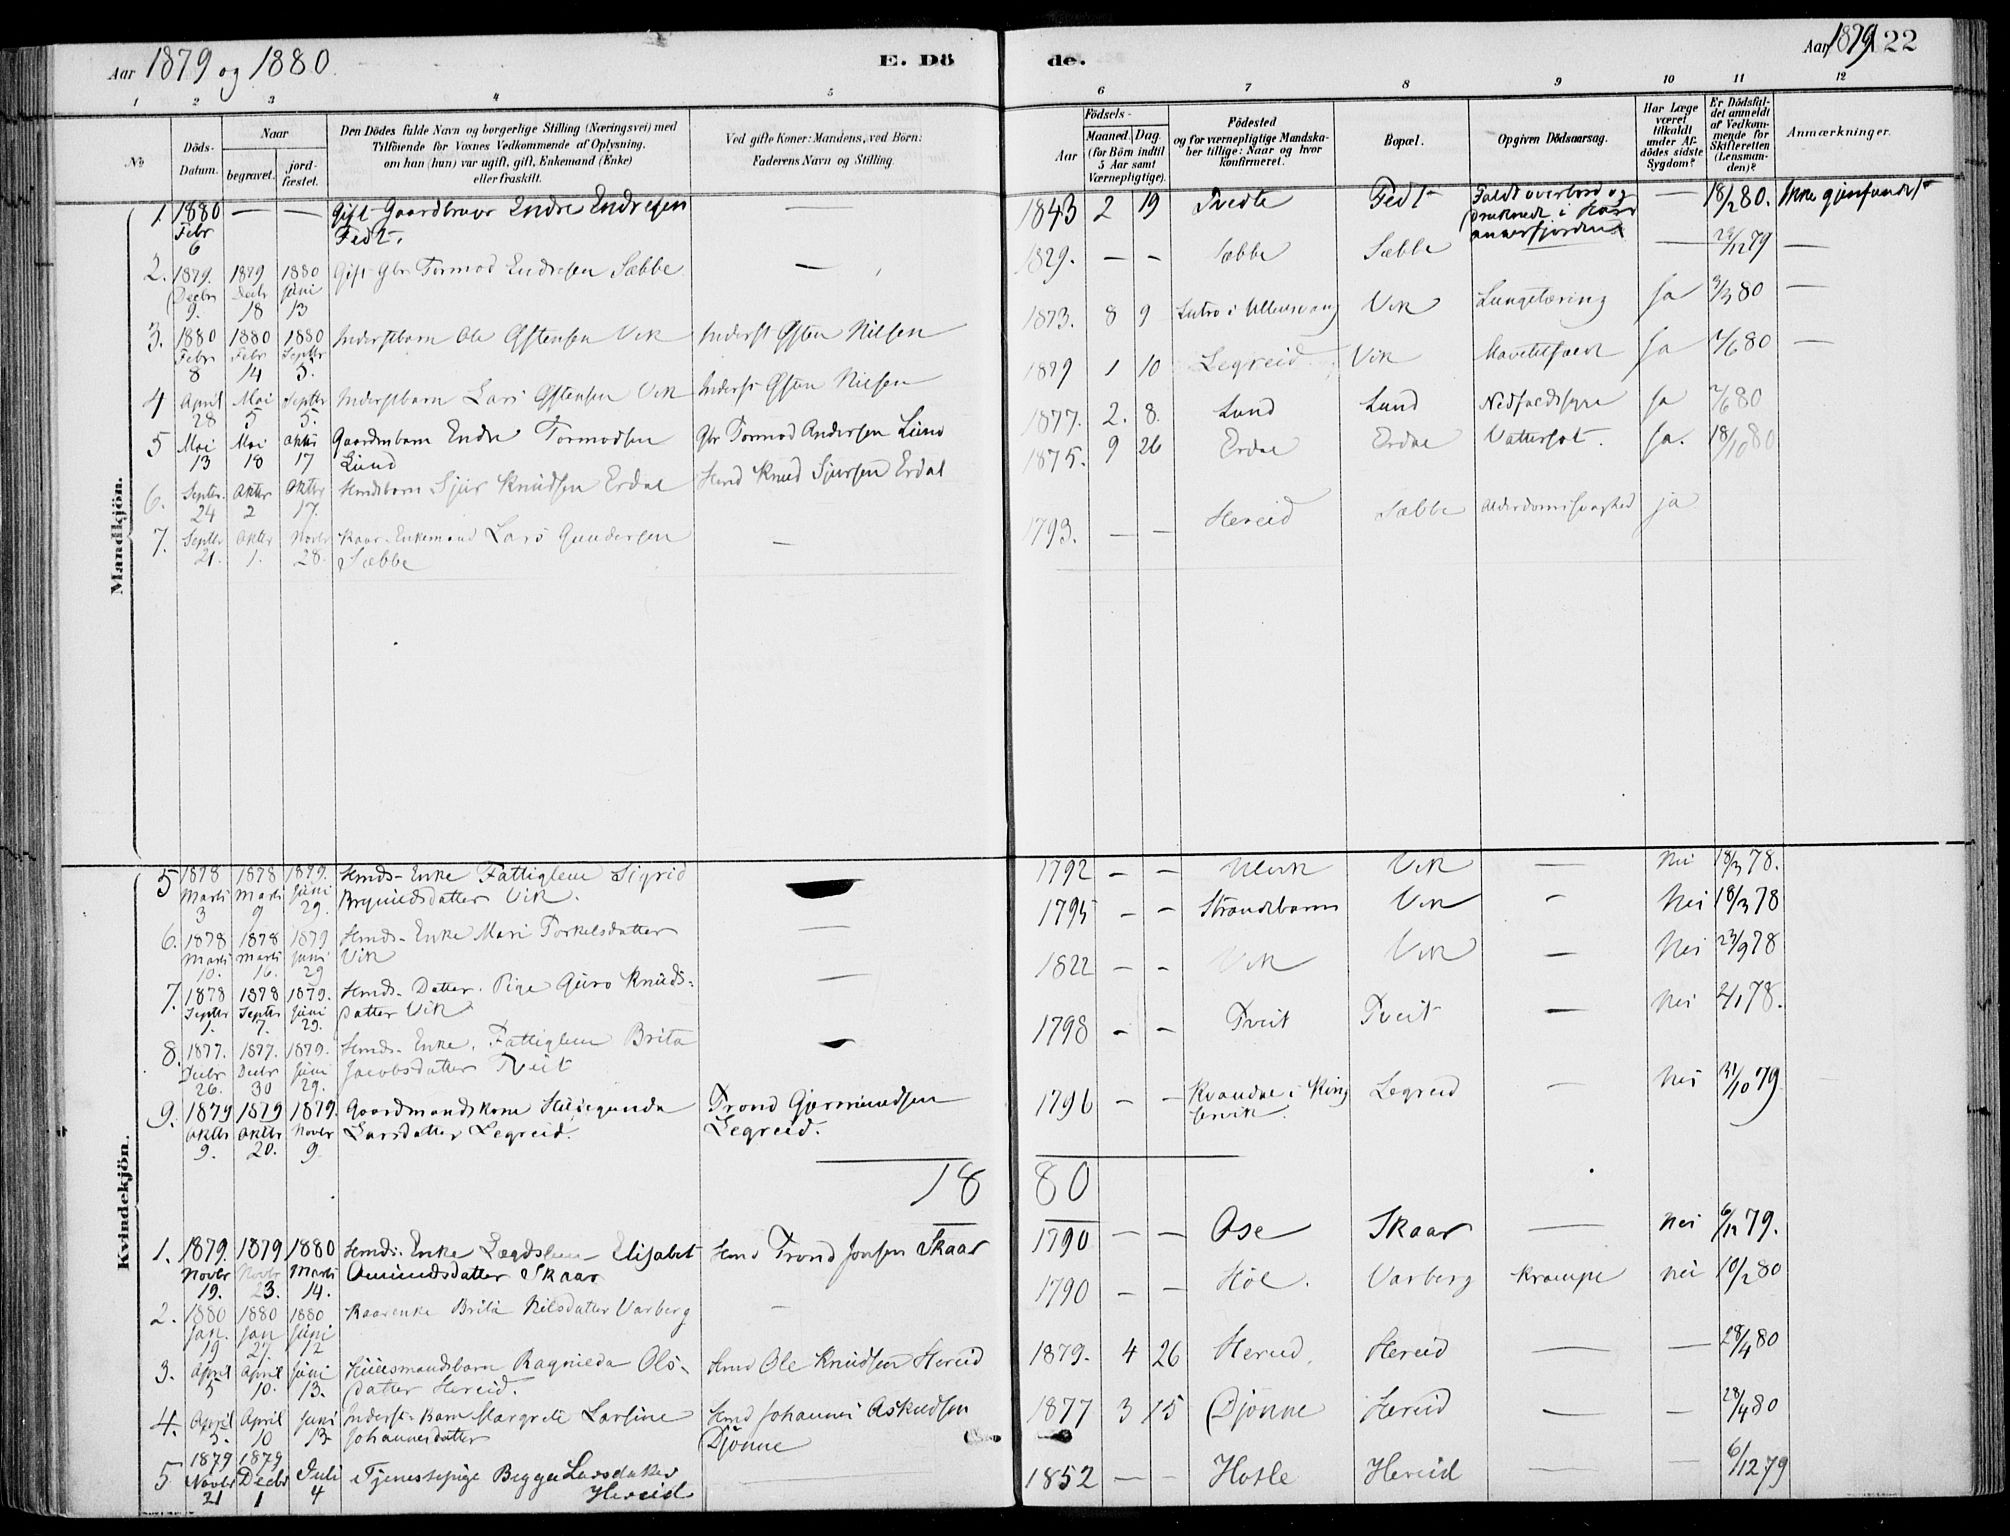 Aar 1879 og 1880.
E. Dö
de.
Aar 1879
122
1 2 3 4 5
6 7 8 9 10 11 12
No
Döds-Datum.
Naar
begravet.
jordfæstet.
Den Dödes fulde Navn og borgerlige Stilling (Næringsvei) med
Tilföiende for Voxnes Vedkommende af Oplysning,
om han (hun) var ugift, gift, Enkemand (Enke)
eller fraskilt.
Ved gifte Koner: Mandens, ved Börn:
Faderens Navn og Stilling.
Födsels-
Aar
Maaned. Dag.
(for Börn indtil
5 Aar samt
Værnepligtige).
Födested
og for værnepligtige Mandskaber tillige: Naar og hvor
konfirmeret.
Bopæl.
Opgiven Dödsaarsag.
Har Læge
været
tilkaldt
under Afdödes sidste
Sygdom?
Er Dödsfaldet anmeldt
af Vedkommende for
Skifteretten
(Lensmanden)?
Anmærkninger.
Mandkjön.
1. 1880 Febr 6 — — Gift Gaardbruger Endre Endresen Fedt. — 1843 2 19 Tvedte Fedt Faldt overbord og druknede i — 18/2 80. Ikke gjenfundet
2. 1879. Decbr 9. 1879 Decbr 18 1880 Juni 13 Gift Gbr Tormod Endresen Sæbbe — 1829. — — Sæbbe Sæbbe — 12 79 —
3. 1880 Febr 8 1880 Febr 14 1880 Septbr 5. Inderstbarn Ole Østensen Vik Inderst Østen Nilsen 1873. 8 9 Lutro i Ullensvang Vik Lungetæring Ja 3/3 80 —
4 April 28 Mai 5 Septbr 5. Inderstbarn Lars Østensen Vik Inderst Østen Nilsen 1879 1 10 Legreid Vik Ja /6 80 —
5 Mai 13 Mai 18 Oktbr 17 Gaardmbarn Endre Tormodsen Lund Gbr Tormod Andersen Lund 1877. 2. 8. Lund Lund Nedfaldssyge Ja /6 80
6. Septbr. 24 Oktbr 2 Oktbr 17. Hmdsbarn Sjur Knudsen Erdal Hmd Knud Sjursen Erdal 1875. 9 26 Erdal Erdal Vattersot. Ja. 18/10 80
7. Septbr 21. Oktbr 1. Novbr 28. Kaar-Enkemand Lars Gundersen Sæbbe — 1793. — — Hereid Sæbbe Alderdomssvaghed ja
Kvindekjön.
5 1878 Marts 3 1878 Marts 9 1879. Juni 29. Hmds-Enke Fattiglem Sigrid Brynildsdatter Vik. — 1792 — — Ulvik Vik — Nei 18/3 78.
6. 1878 Marts 10. 1878 Marts 16. 1879 Juni 29 Hmds-Enke Mari Torkelsdatter Vik — 1795 — — Strandebarm Vik — Nei 18/3 78
7. 1878 Septbr 1. 1878 Septbr 7. 1879. Juni 29. Hmds-Datter. Pige Guro Knudsdatter Vik — 1822 — — Vik Vik — Nei 23/9 78
8. 1877. Decbr 26. 1877. Decbr 30 1879. Juni 29. Hmds-Enke. Fattiglem Brita Jacobsdatter Tveit — 1798 — — Tveit Tveit — Nei 2/1 78.
9. 1879 Oktbr 9. 1879 Oktbr 20. 1879. Novbr 9 Gaardmandskone Larsdatter Legreid. Trond Gjermundsen Legreid. 1796 — — Kvandal i Kingservik. Legreid — Nei 31/10 79
1880
1. 1879. Novbr 19. 1879 Novbr 23. 1880 Marts 14. Hmds. Enke Lægdslem - Elisabet Amundsdatter Skaar Hmd Trond Jonsen Skaar 1790 — — Ose Skaar — Nei 6/12 79.
2. 1880 Jan. 19 1880 Jan 27 1880 Juni 12 Kaarenke Brita Nilsdatter Varberg — 1790 — — Höl. Varberg Krampe Nei 10/2 80
3. April 5 April 10. Juni 13. Huusmandsbarn Ragnilda Olsdatter Hereid. Hmd Ole Knudsen Hereid 1879. 4 26 Hereid. Hereid — — 28/4 80
4. April 5. April 10 Juni 13 Inderst-Barn Margrete Larsine Johannesdatter Hmd Johannes Aslendsen Djönne 1877 3 15 Djönne Hereid — — 28/4 80
5 1879 Novbr 21 1879 Decbr 1 Juli 4 Tjenestepige Larsdatter Hereid — 1852 — — Hotle Hereid — — 6/12 79